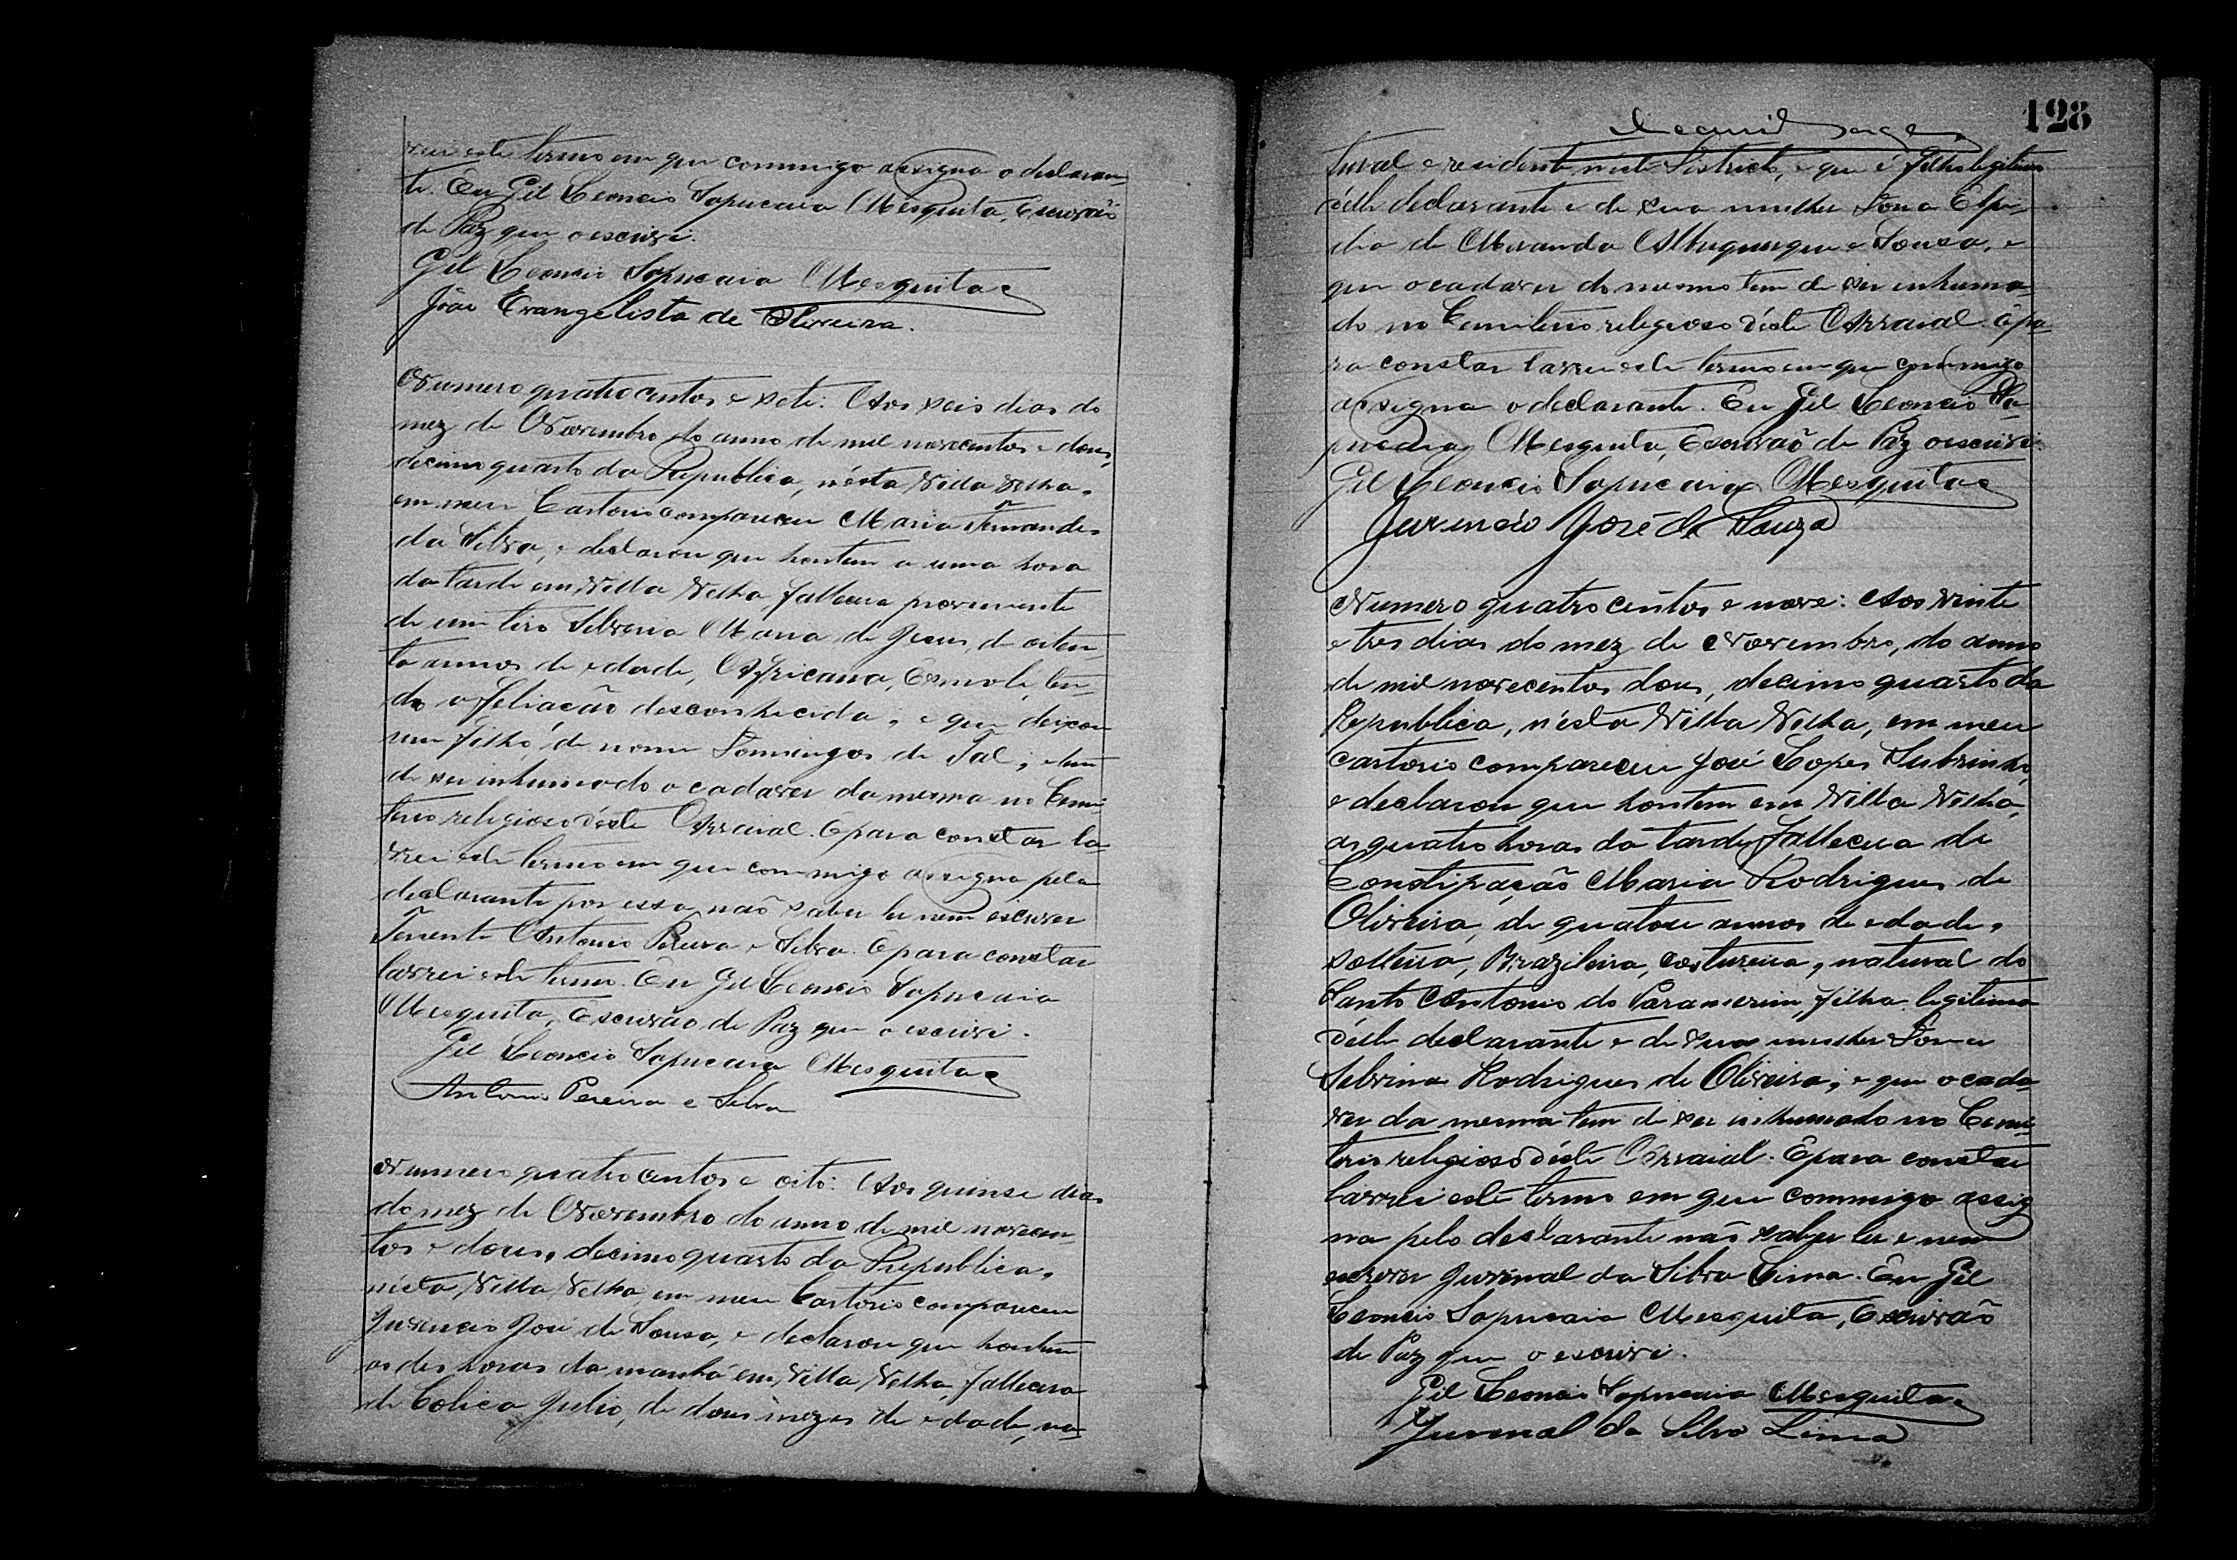 este termo em que commigo assigna o declaran-
te. Eu Gil Leoncio Sapucaia Mesquita, Escrivaõ
de Paz que o escrivi.
Gil Leoncio Sapucaia Mesquita
João Evangelista de Oliveira.
Numero quatrocentos e sete: Aos seis dias do
mez de Novembro do anno de mil novecentos e dous,
decimo quarto da Republica, n'ésta Villa Velha,
em meu Cartorio compareceu Maria Fernandes
da Silva, e declarou que hontem a uma hora
da tarde em Villa Velha, fallecera proveniente
de um tiro Silveria Maria de Jesus, de oiten-
ta annos de edade, Africana, ten-
do a feliação desconhecida, e que deixou
um filho, de nome Domingos de Tal, e tem
de ser inhumado o cadaver da mesma no Cemi-
terio religioso d'éste Arraial. E para constar la-
vrei este termo em que commigo assigna pela
declarante por essa naõ saber ler nem escrever
Tenente Antonio Pereira e Silva. E para constar
lavrei este termo. Eu Gil Leoncio Sapucaia
Mesquita, Escrivão de Paz que o escrivi.
Gil Leoncio Sapucaia Mesquita
Antonio Pereira e Silva
Numero quatrocentos e oito: Aos quinse dias
do mez de Novembro do anno de mil novecen-
tos e dous, decimo quarto da Republica,
n'ésta Villa Velha, em meu Cartorio compareceu
Juvencio José de Sousa, e declarou que hontem
as des horas da manhã em Villa Velha, fallecera
de Colica Julio, de dous mezes de edade, na-
128
tural e residente n'este Districto, e que é filho legitimo
d'elle declarante e de sua mulher Dona Elpi-
dia de Miranda Albuquerque e Sousa, e
que o cadaver do mesmo tem de ser inhuma-
do no Cemiterio religioso d'éste Arraial. E pa-
ra constar lavrei este termo em que commigo
assigna o declarante. Eu Gil Leoncio Sa-
pucaia Mesquita, Escrivaõ de Paz o escrivi.
Gil Leoncio Sapucaia Mesquita
Juvencio José de Souza
Numero quatrocentos e nove: Aos vinte
e tres dias do mez de Novembro, do anno
de mil novecentos dous, decimo quarto da
Republica, n'ésta Villa Velha, em meu
Cartorio compareceu José Lopes Subrinho,
e declarou que hontem em Villa Velha,
as quatro horas da tarde, fallecera de
Constipação Maria Rodrigues de
Oliveira, de quatose annos de edade,
solteira, Brazileira, costureira, natural do
Santo Antonio do Paramerim, filha legitima
d'elle declarante e de sua mulher Dona
Silvina Rodrigues de Oliveira; e que o cada-
ver da mesma tem de ser inhumado no Cemi-
terio religioso d'éste Arraial. E para constar
lavrei este termo em que commigo assig
na pelo declarante naõ saber ler e nem
escrever Juvinal da Silva Lima. Eu Gil
Leoncio Sapucaia Mesquita, Escrivaõ
de Paz que o escrivi.
Gil Leoncio Sapucaia Mesquita
Juvenal da Silva Lima